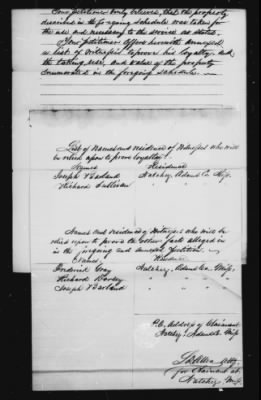 Your petitioner verily believes, that the property
described in the foregoing schedule was taken for
the use and necessary to the service as stated.
Your petitioner offers herewith annexed
a list of witnesses to prove his loyalty, and
the taking, use, and value of the property
enumerated in the foregoing schedule.
List of Names and residence of Witnesses who will
be relied upon to prove loyalty.
Names Residence
Joseph Natchez, Adams Co. Miss.
Richard Sullivan
Names and residence of Witnesses who will be
relied upon to prove the other facts alleged in
in the foregoing and annexed Petition.
Names Residence
Frederick Gray Natchez, Adams Co. Miss,
Richard
Joseph
P.O. Address of Claimant
Natchez, Adams Co Miss.
Atty.
for Claimant at
Natchez Miss